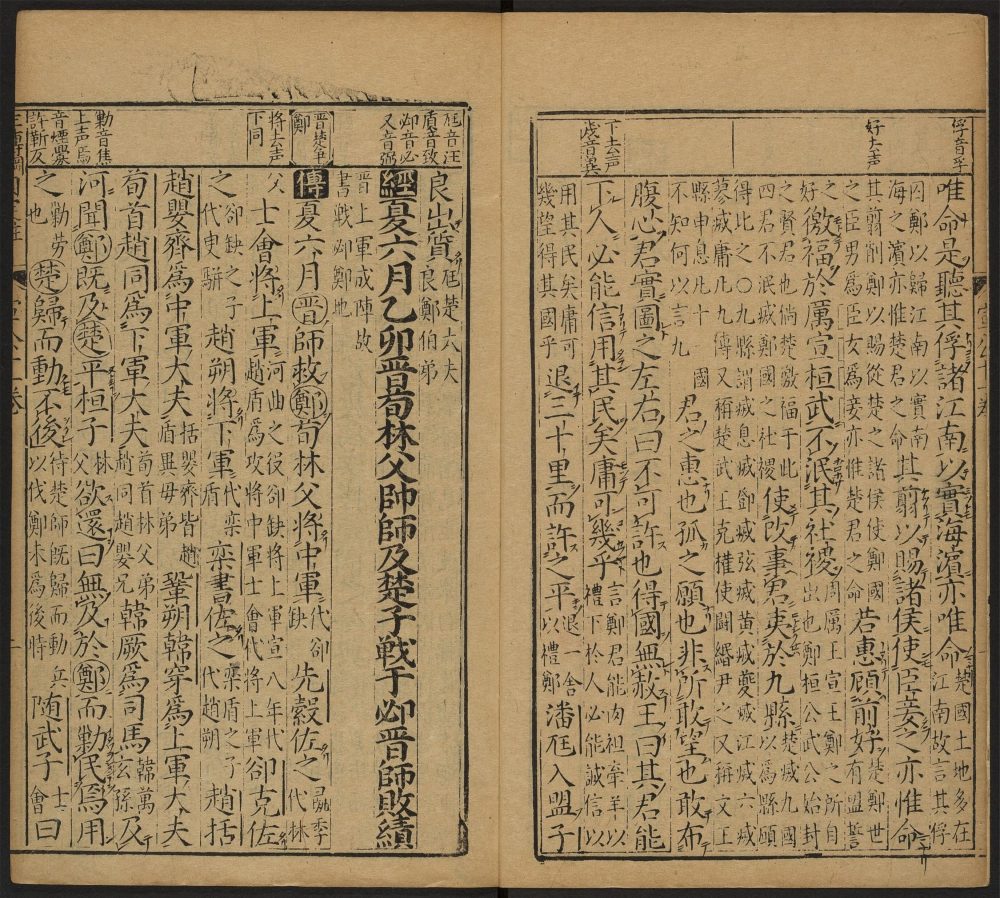 俘音孚
好去声
下去声
唯命是聽其俘諸江南以實海濱亦唯命楚國土地多在江南故言其俘
囚鄭以歸江南以實南海之濱亦惟楚君之命其翦以賜諸侯使臣妾之亦惟命
其翦削鄭以賜從楚之諸侯使鄭國之臣男爲臣女爲妾亦惟楚君之命若惠顧前好楚鄭世有盟誓
之好徼福於厲宣桓武不泯其社稷周厲王宣王鄭之所自出也鄭桓公武公始封
之賢君也倘楚徼福于此四君不泯滅鄭國之社稷使改事君夷於九縣楚滅九國以爲縣願
得比之〇九縣謂滅息滅鄧滅弦滅黄滅夔滅江滅六滅蓼滅庸凡九傳又稱楚武王克權使鬭緡尹之又稱文王
縣申息凡十國不知何以言九君之惠也孤之願也非所敢望也敢布
腹心君實圖之左右曰不可許也得國無赦王曰其君能
下人必能信用其民矣庸可幾乎言鄭君能肉袒牽羊以禮下於人必能誠信以
用其民矣庸可幾望得其國乎退三十里而許之平退一舍以禮鄭潘尫入盟子
宣公十二卷
尫音汪
質音致
邲音必
又音弼
晋楚争鄭
將去声
下同
動音焦
上声焉
音煙
良出質尫楚大夫良鄭伯弟
經夏六月乙卯晋荀林父帥師及楚子戰于邲晋師敗績
晋上軍成陣故書戰邲鄭地
傳夏六月晋師救鄭荀林父將中軍代郤缺先縠佐之彘季代林
父士會將上軍河曲之役郤缺將上軍宣八年代趙盾爲政將中軍士會代將上軍郤克佐
之郤缺之子代臾駢趙朔將下軍代欒盾欒書佐之欒盾之子代趙朔趙括
趙嬰齊爲中軍大夫括嬰齊皆趙盾異母弟鞏朔韓穿爲上軍大夫
荀首趙同爲下軍大夫荀首林父弟趙同趙嬰兄韓厥爲司馬韓萬玄孫及
河聞鄭既及楚平桓子林父欲還曰無及於鄭而勦民焉用
之勦勞也楚歸而動不後待楚師既歸而動兵以伐鄭未爲後時随武子士會曰